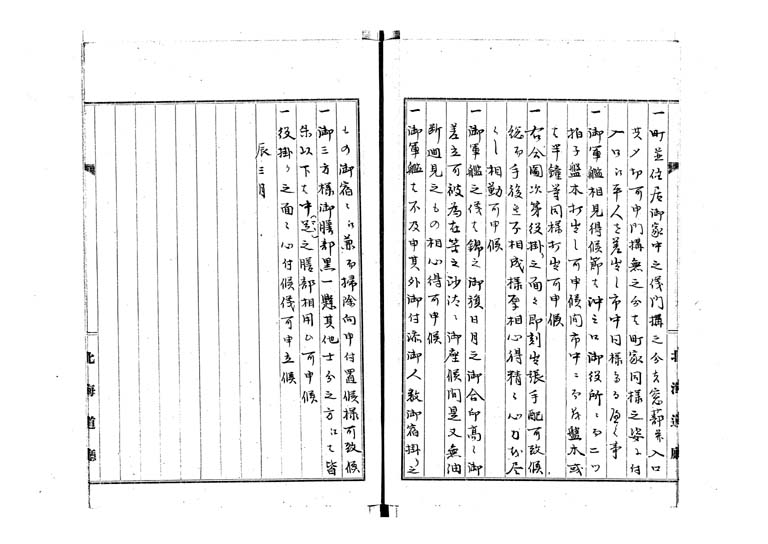 一町並住居御家中之儀門構之分者窓蔀并入口
〆切可申門構無之分者町家同様之姿ニ付
入口江平人を差出し市中同様たるべし事
一御軍艦相見得候節者沖之口御役所ニ而二つ
拍子盤木打出し可申候間市中ニ而茂盤木或
者半鐘等同様打出可申候
一右合図次第役掛り之面々即刻出張手配可致候
総而手後ニ不相成様厚相心得精々心力を尽
くし相勤可申候
一御軍艦之儀者錦之御旗日月之御合印高々御
差立可被為在等之沙汰ニ御座候間是又無油
断遍見之もの相心得可申候
一御軍艦者不及申其外御付添御人数御宿掛り之
もの御宿々江兼而掃除向申付置候様可致候
一御三方様御膳部黒一懸其他士分之方江者皆
朱以下者中(ママ)足之膳部相用ひ可申候
一役掛り之面々心付候儀可申立候
辰三月
北海道廳
北海道廳